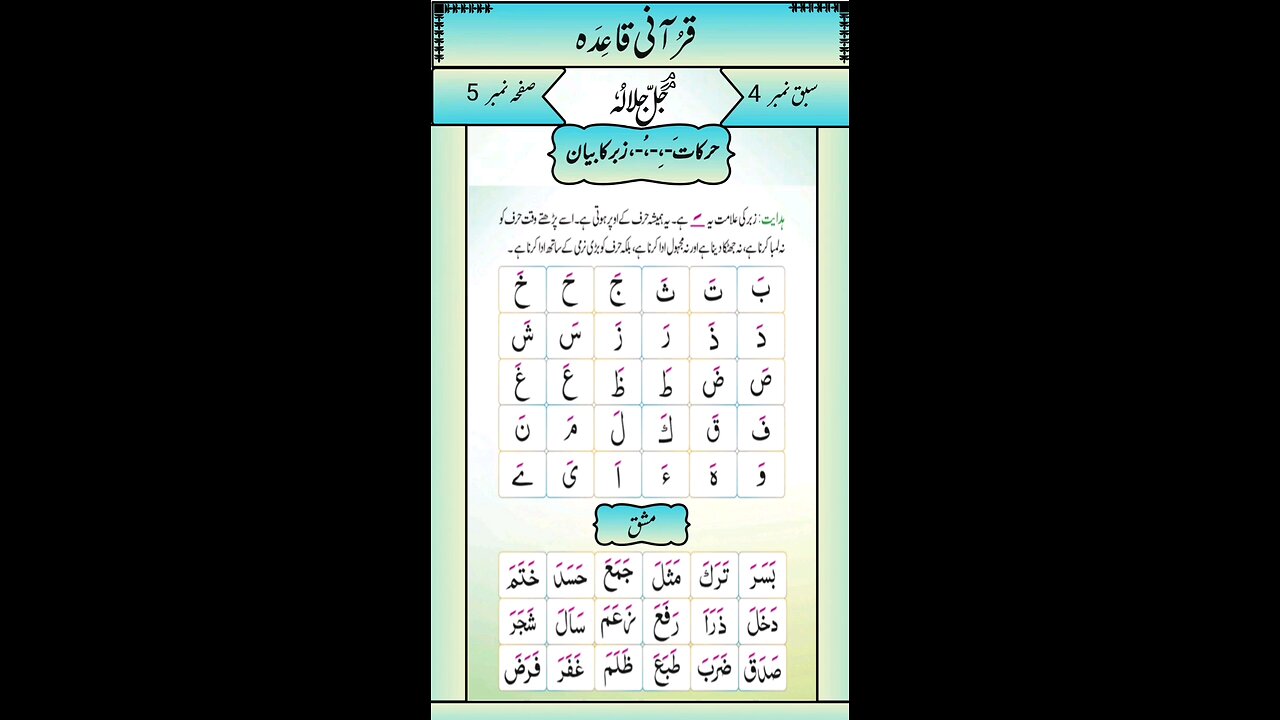 قرآنی قاعِدَہ
سبق نمبر 4
جَلَّ جلالہٗ
صفحہ نمبر 5
حرکات َ-، ِ-، ُ-، زبر کا بیان
ہدایت: زبر کی علامت یہ َ ہے۔ یہ ہمیشہ حرف کے اوپر ہوتی ہے۔ اسے پڑھتے وقت حرف کو
نہ لمبا کرنا ہے، نہ جھٹکا دینا ہے اور نہ مجہول ادا کرنا ہے، بلکہ حرف کو بڑی نرمی کے ساتھ ادا کرنا ہے۔
بَ تَ ثَ جَ حَ خَ
دَ ذَ رَ زَ سَ شَ
صَ ضَ طَ ظَ عَ غَ
فَ قَ كَ لَ مَ نَ
وَ ةَ ءَ اَ یَ ےَ
مشق
بَسَرَ تَرَكَ مَثَلَ جَمَعَ حَسَدَ خَتَمَ
دَخَلَ ذَرَاَ رَفَعَ زَعَمَ سَاَلَ شَجَرَ
صَدَقَ ضَرَبَ طَبَعَ ظَلَمَ غَفَرَ فَرَضَ